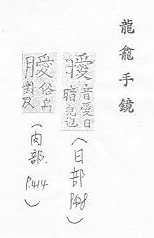 龍龕手鏡
曖音愛日
暗皃也
(日部 P428)
俗烏
對反
(肉部 P.414)